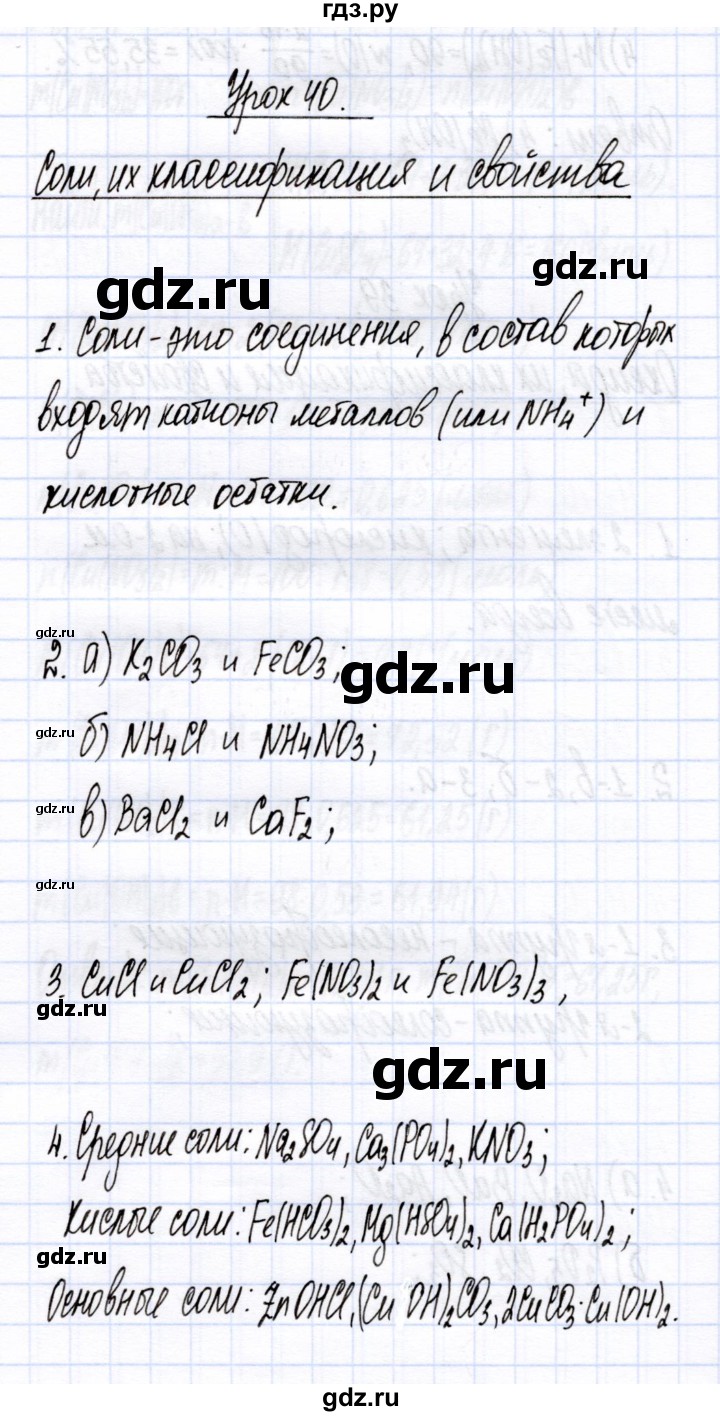 гдз.ру
Урок 40.
Соли, их классификация и свойства
gdz.ru
gdz.ru
1. Соли - это соединения, в состав которых
входят катионы металлов (или NH4⁺) и
кислотные остатки.
gdz.ru
2. а) K2CO3 и FeCO3;
gdz.ru
gdz.ru
б) NH4Cl и NH4NO3;
gdz.ru
в) BaCl2 и CaF2;
gdz.ru
3 CuCl и CuCl2; Fe(NO3)2 и Fe(NO3)3,
gdz.ru
gdz.ru
4. Средние соли: Na2SO4, Ca3(PO4)2, KNO3;
Кислые соли: Fe(HCO3)2, Mg(HSO4)2, Ca(H2PO4)2;
gdz.ru
Основные соли: ZnOHCl, (CuOH)2CO3, 2CuCO3·Cu(OH)2.
gdz.ru